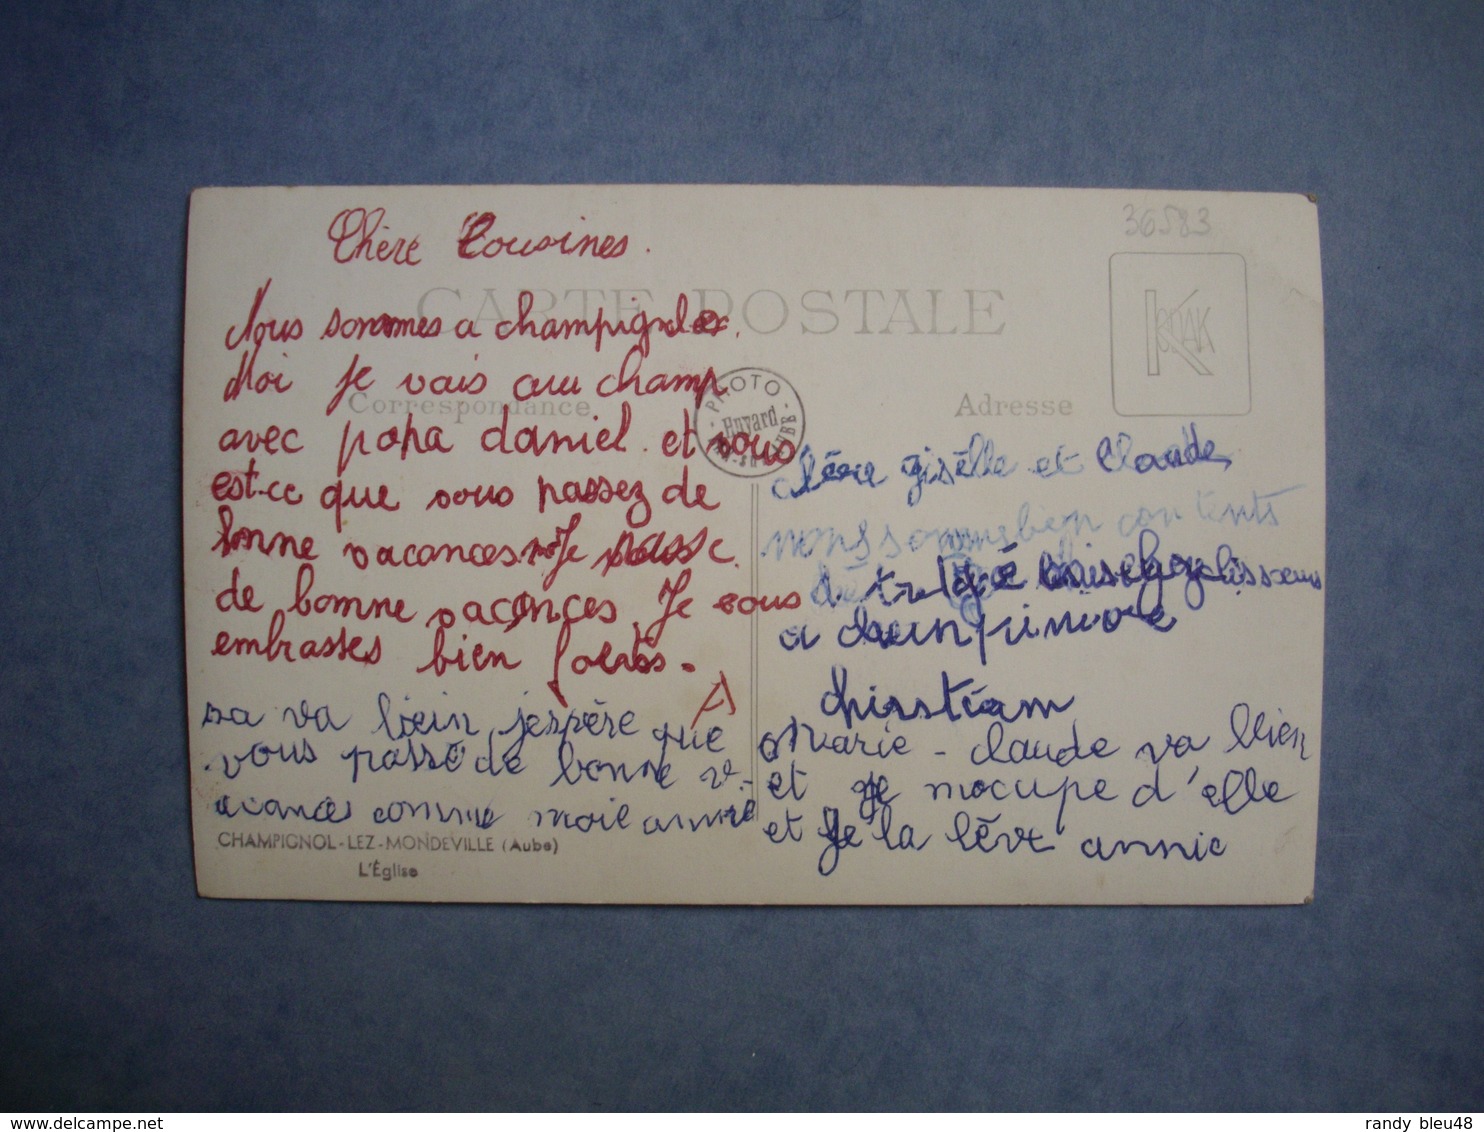 36583
CARTE POSTALE
KODAK
Correspondance
Adresse
PHOTO
Huyard
BAR-SUR-AUBE
Chère Cousines.
Nous sommes a champignol
Moi je vais au champ
avec papa daniel. et vous
est-ce que vous passez de
bonne vacances. moi Je passe
de bonne vacances. Je vous
embrasses bien fortes.
sa va biein jespère que
vous passé de bonne v-
acances comme moi annie
CHAMPIGNOL-LEZ-MONDEVILLE (Aube)
L'Église
chère gisèlle et Claude
nous somme bien contents
a
christéam
Marie - claude va bien
et je mocupe d'elle
et Je la lève annie
randy bleu48
delcampe.net